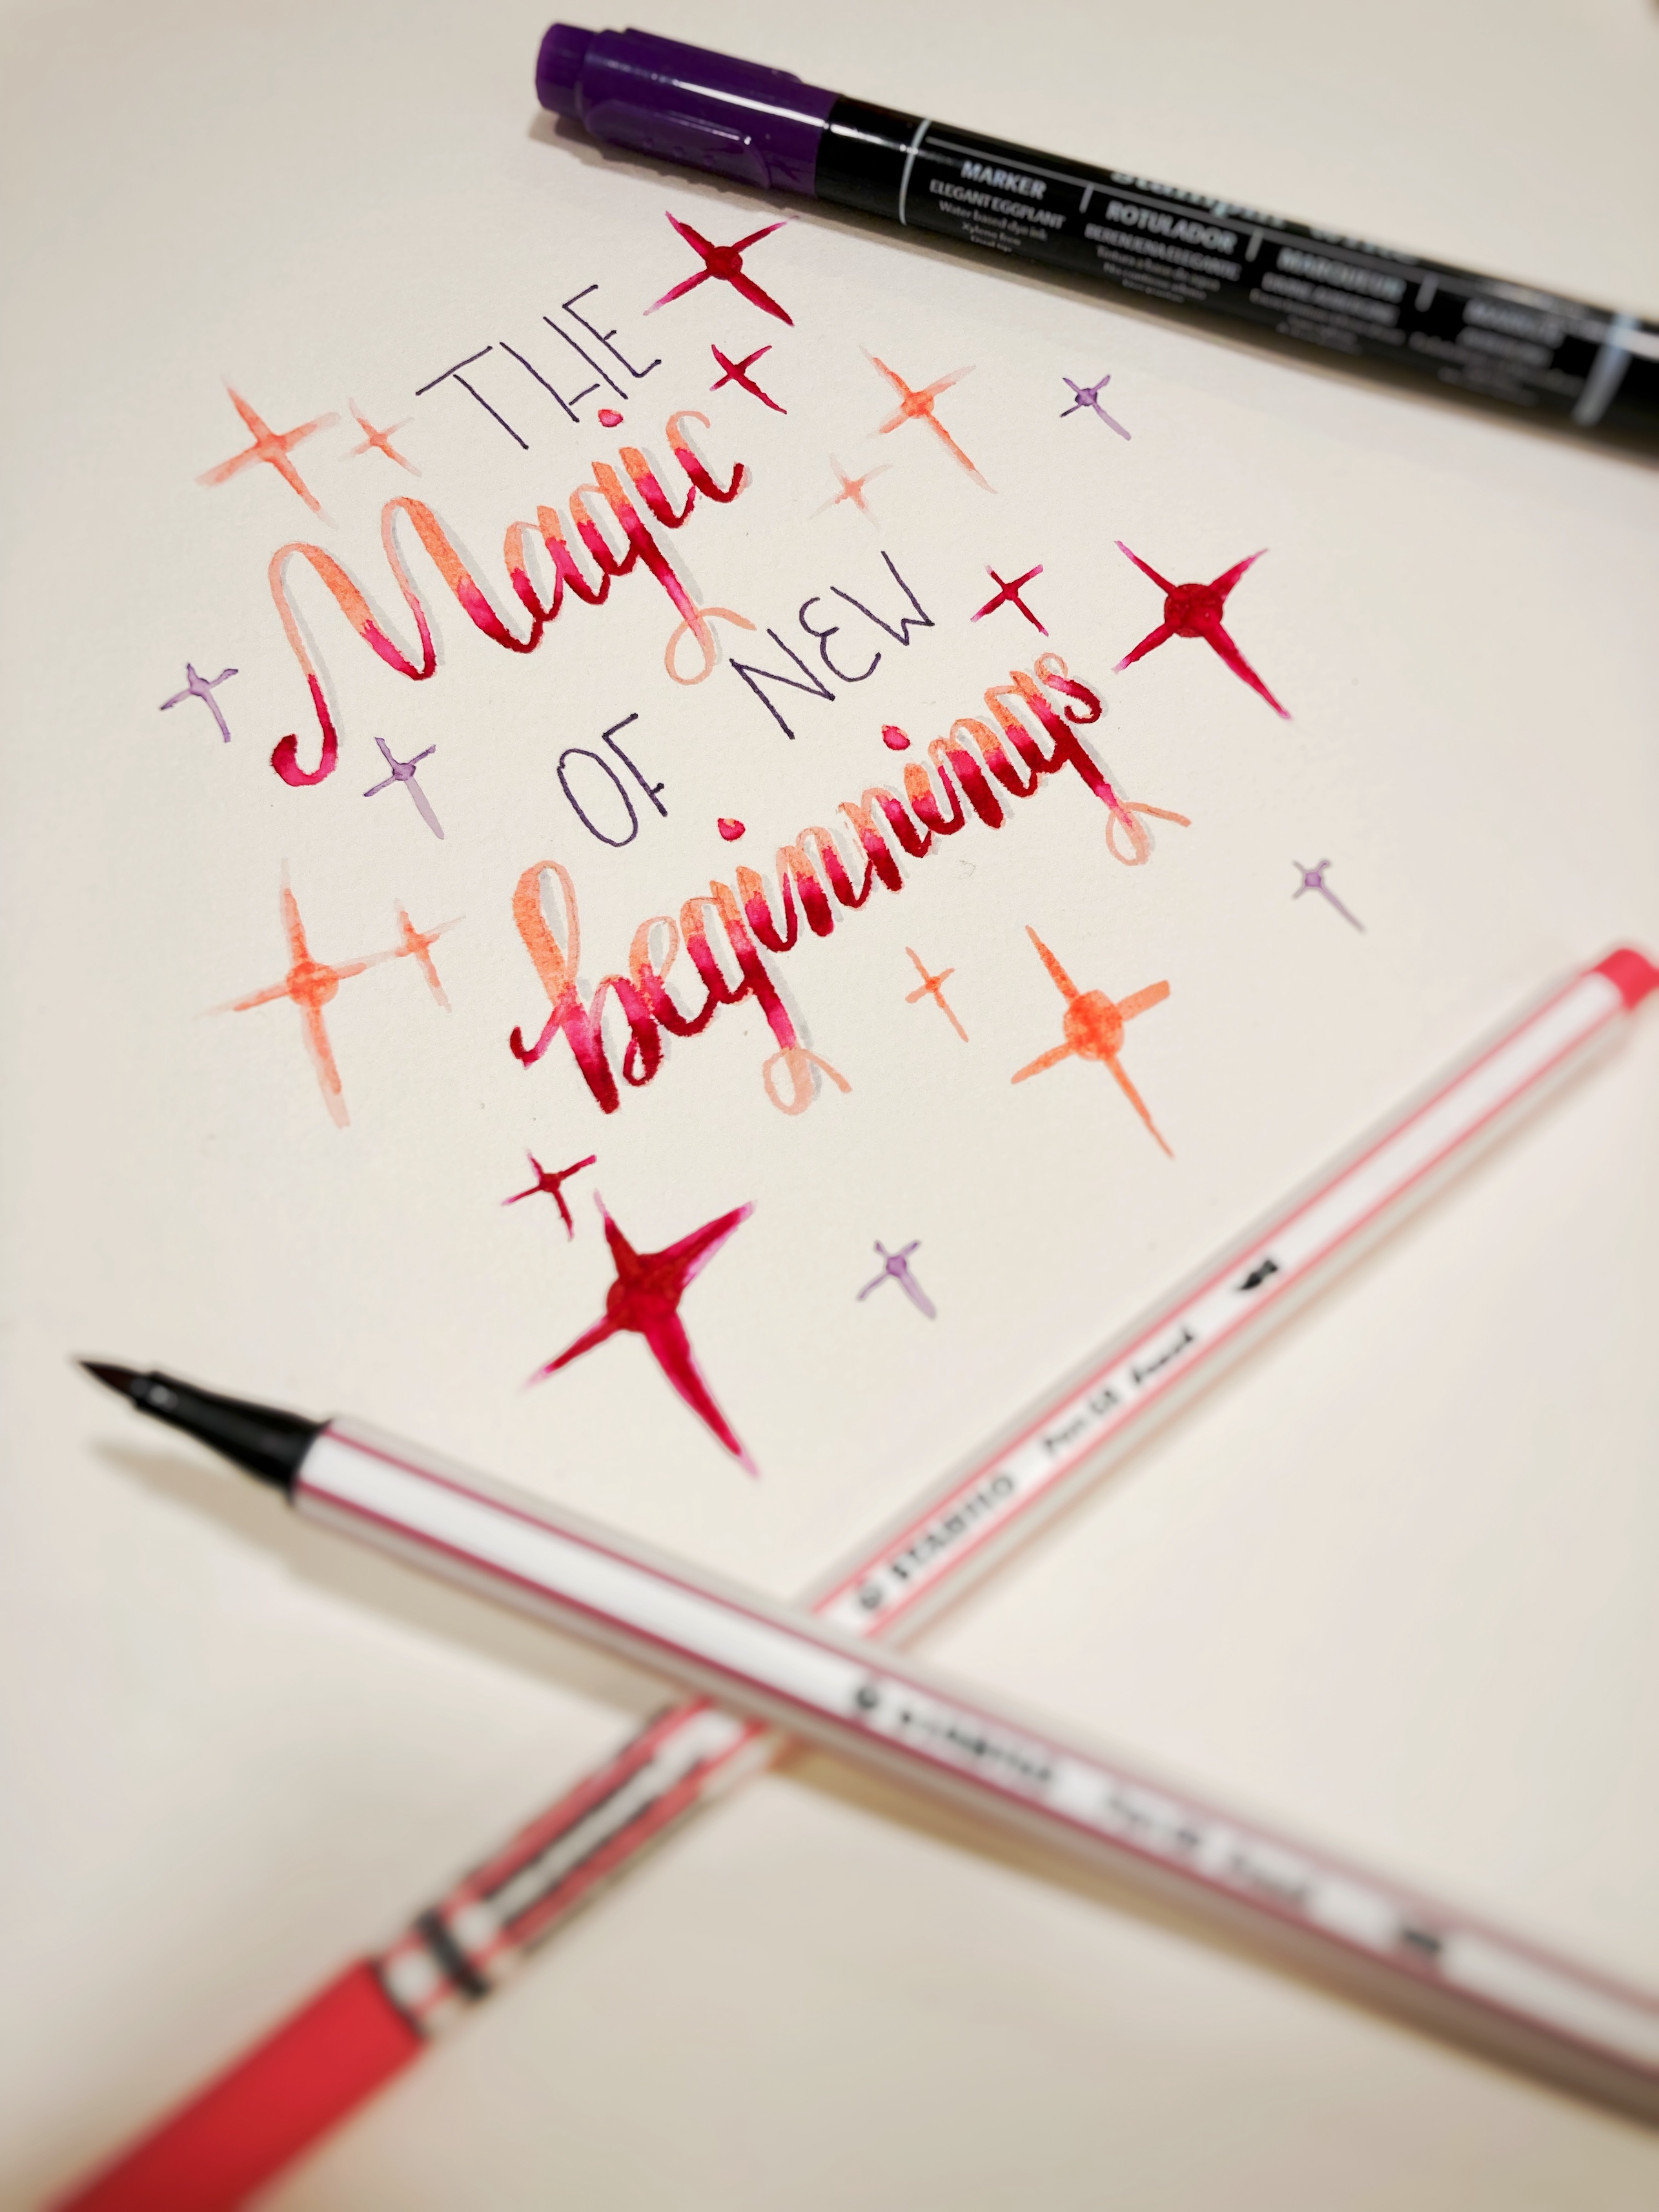 MARKER
ELEGANT EGGPLANT
Water based dye ink
Xylene free
ROTULADOR
BERENJENA ELEGANTE
MARQUEUR
THE
Magic
OF NEW
beginnings
STABILO Pen 68 brush